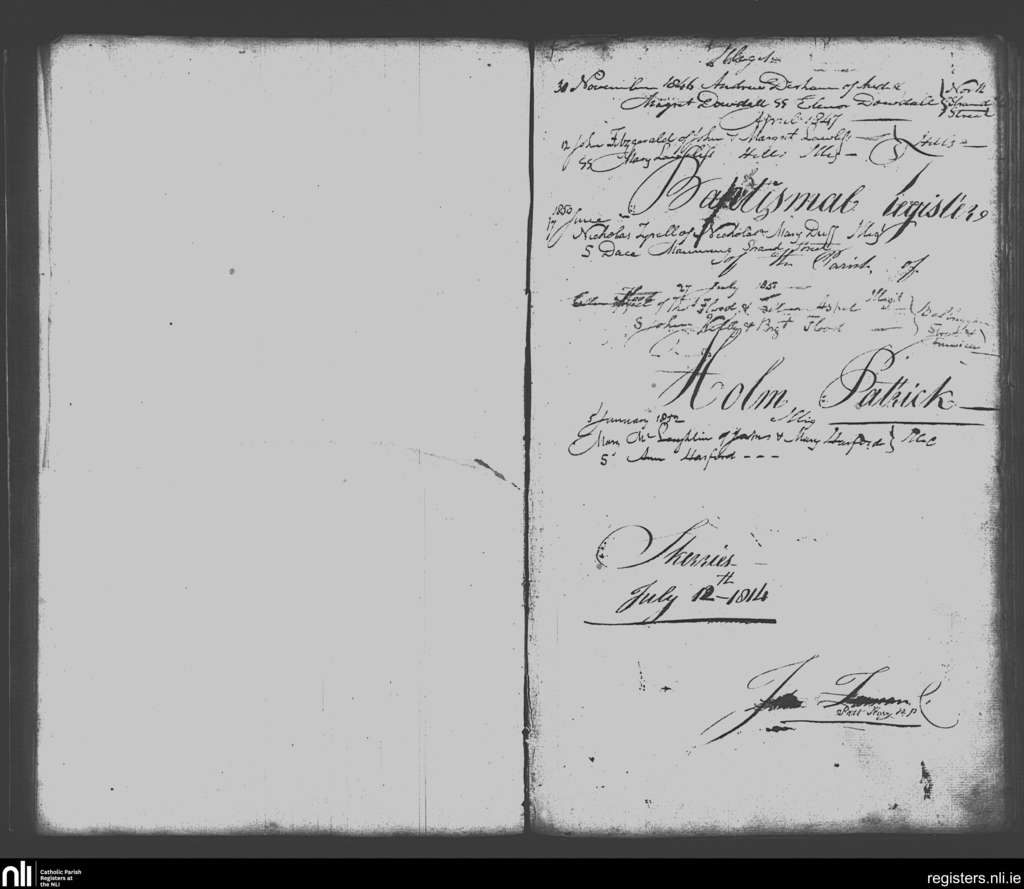 Illegit
30 November 1846 Andrew Derham of And &
Margret Dowdall SS Elenor Dowdall } North Strand Street
April 1847
12 John Fitzgerald of John & Margret Lawless
SS Mary Lawless Hills Illeg } Hills
Baptismal Register
1850
17 June
Nicholas Tyrell of Nicholas Mary Duff Illeg
S Dace Manning Strand Street
of the Parish of
27 July 1851
of Thos Flood & Illegit
S John & Bgt Flood
Holm Patrick
5 January 1852 Illeg
Mary McLoughlin of James & Mary Harford }
S Ann Harford
Skerries
July 12th 1814
nli
Catholic Parish
Registers at
the NLI
registers.nli.ie